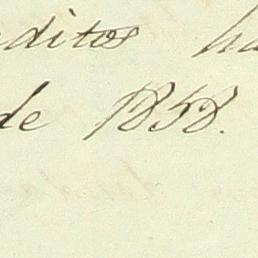 ditos ha
de 1858.